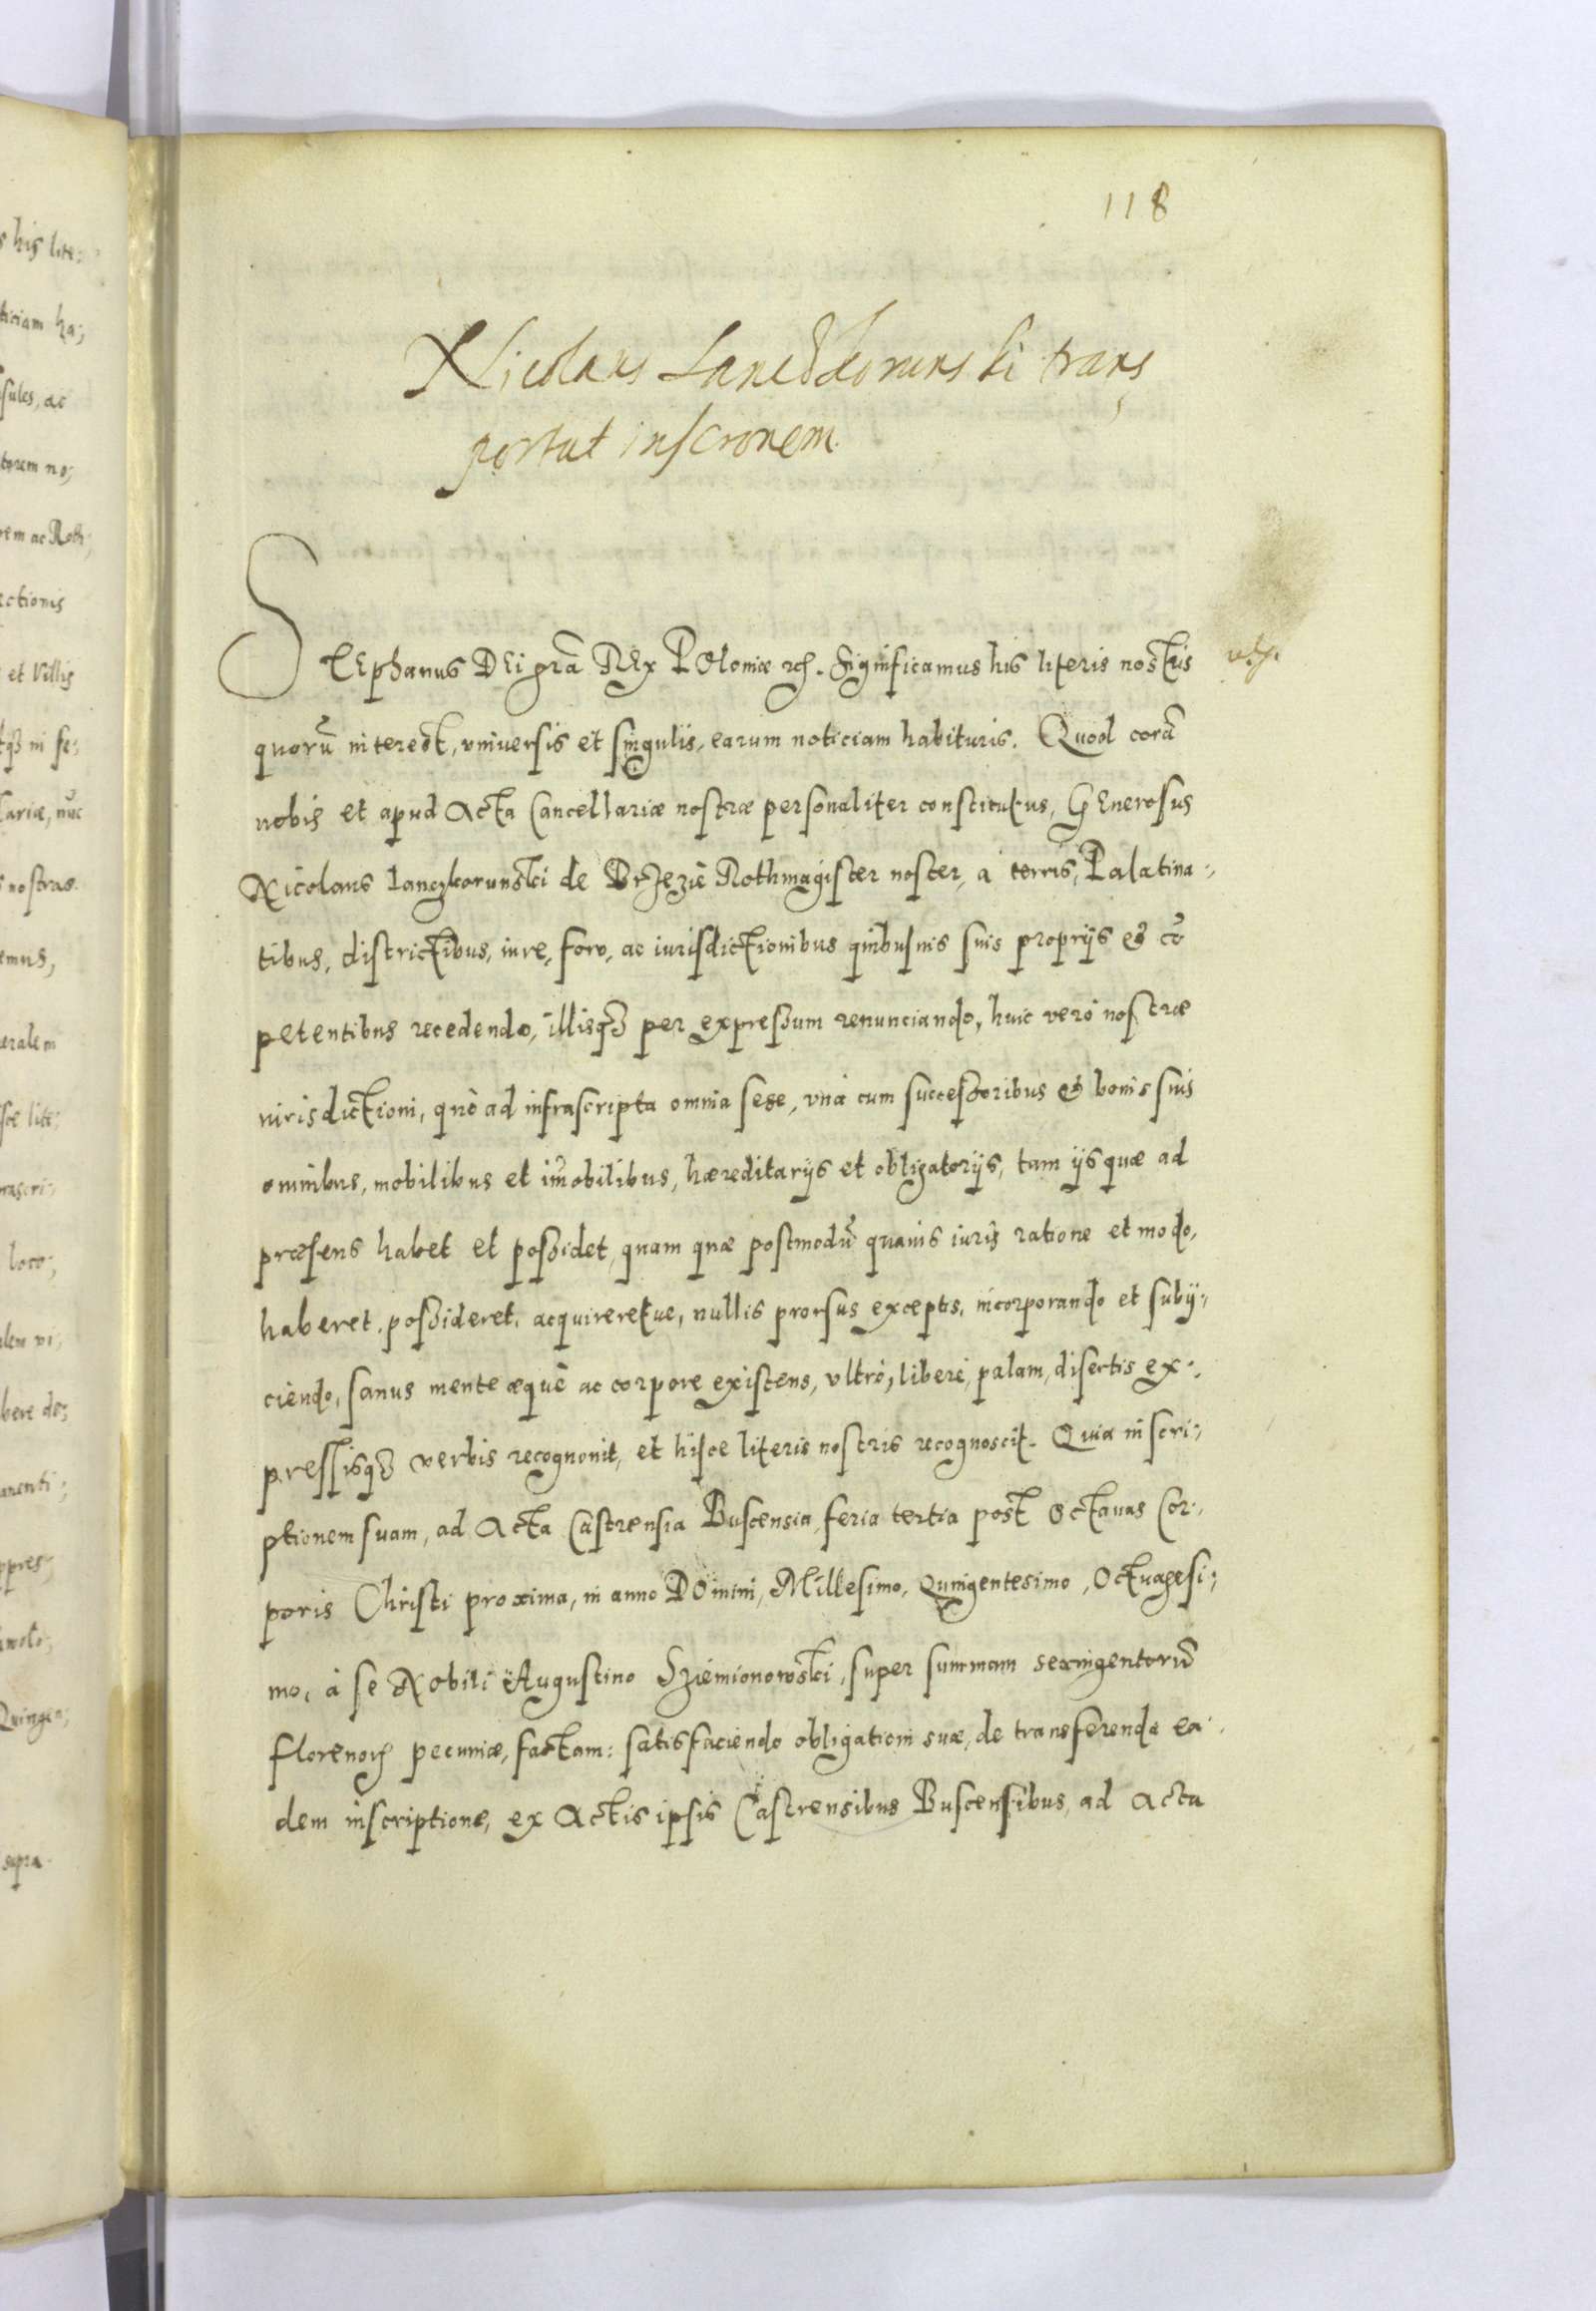 118
Nicolaus Lanczkorunski trans
portat inscronem.
Stephanus Dei gra Rex Poloniæ etc. Significamus his literis nostris
quorũ interest, vniuersis et singulis, earum noticiam habituris. Quod corã
nobis et apud Acta Cancellariæ nostræ personaliter constitutus, Generosus
Nicolaus Lanczkorunski de Brzezie Rothmagister noster, à terris, Palatina-
tibus, districtibus, iure, foro, ac iurisdictionibus quibusuis suis proprijs et cõ
petentibus recedendo, illisq3 per expressum renunciando, huic verò nostræ
iurisdictioni, quò ad infrascripta omnia sese, vnà cum successoribus et bonis suis
omnibus, mobilibus et im̃obilibus, hæreditarijs et obligatorijs, tam ijs quæ ad
præsens habet et possidet, quam quæ postmodũ quauis iuris ratione et modo,
haberet, possideret, acquireretue, nullis prorsus exceptis, incorporando et subij-
ciendo, sanus mente æquè ac corpore existens, vltrò, liberè, palam, disertis ex-
pressisq3 verbis recognouit, et hisce literis nostris recognoscit. Quia inscri-
ptionem suam, ad Acta Castrensia Buscensia, feria tertia post Octauas Cor-
poris Christi proxima, in anno Domini, Millesimo, Quingentesimo, Octuagesi-
mo, à se Nobili Augustino Sziemionowski, super summam sexingentorũ
florenorum pecuniæ, factam: satisfaciendo obligationi suæ, de transferenda ea-
dem inscriptione, ex Actis ipsis Castrensibus Buscensibus, ad Acta
his lite:
ticiam ha;
sules, ac
torem no;
rem ac Roth;
ctionis
et Villis
nostras.
emus,
eralem
loco;
bere de;
Quingen;
supra.